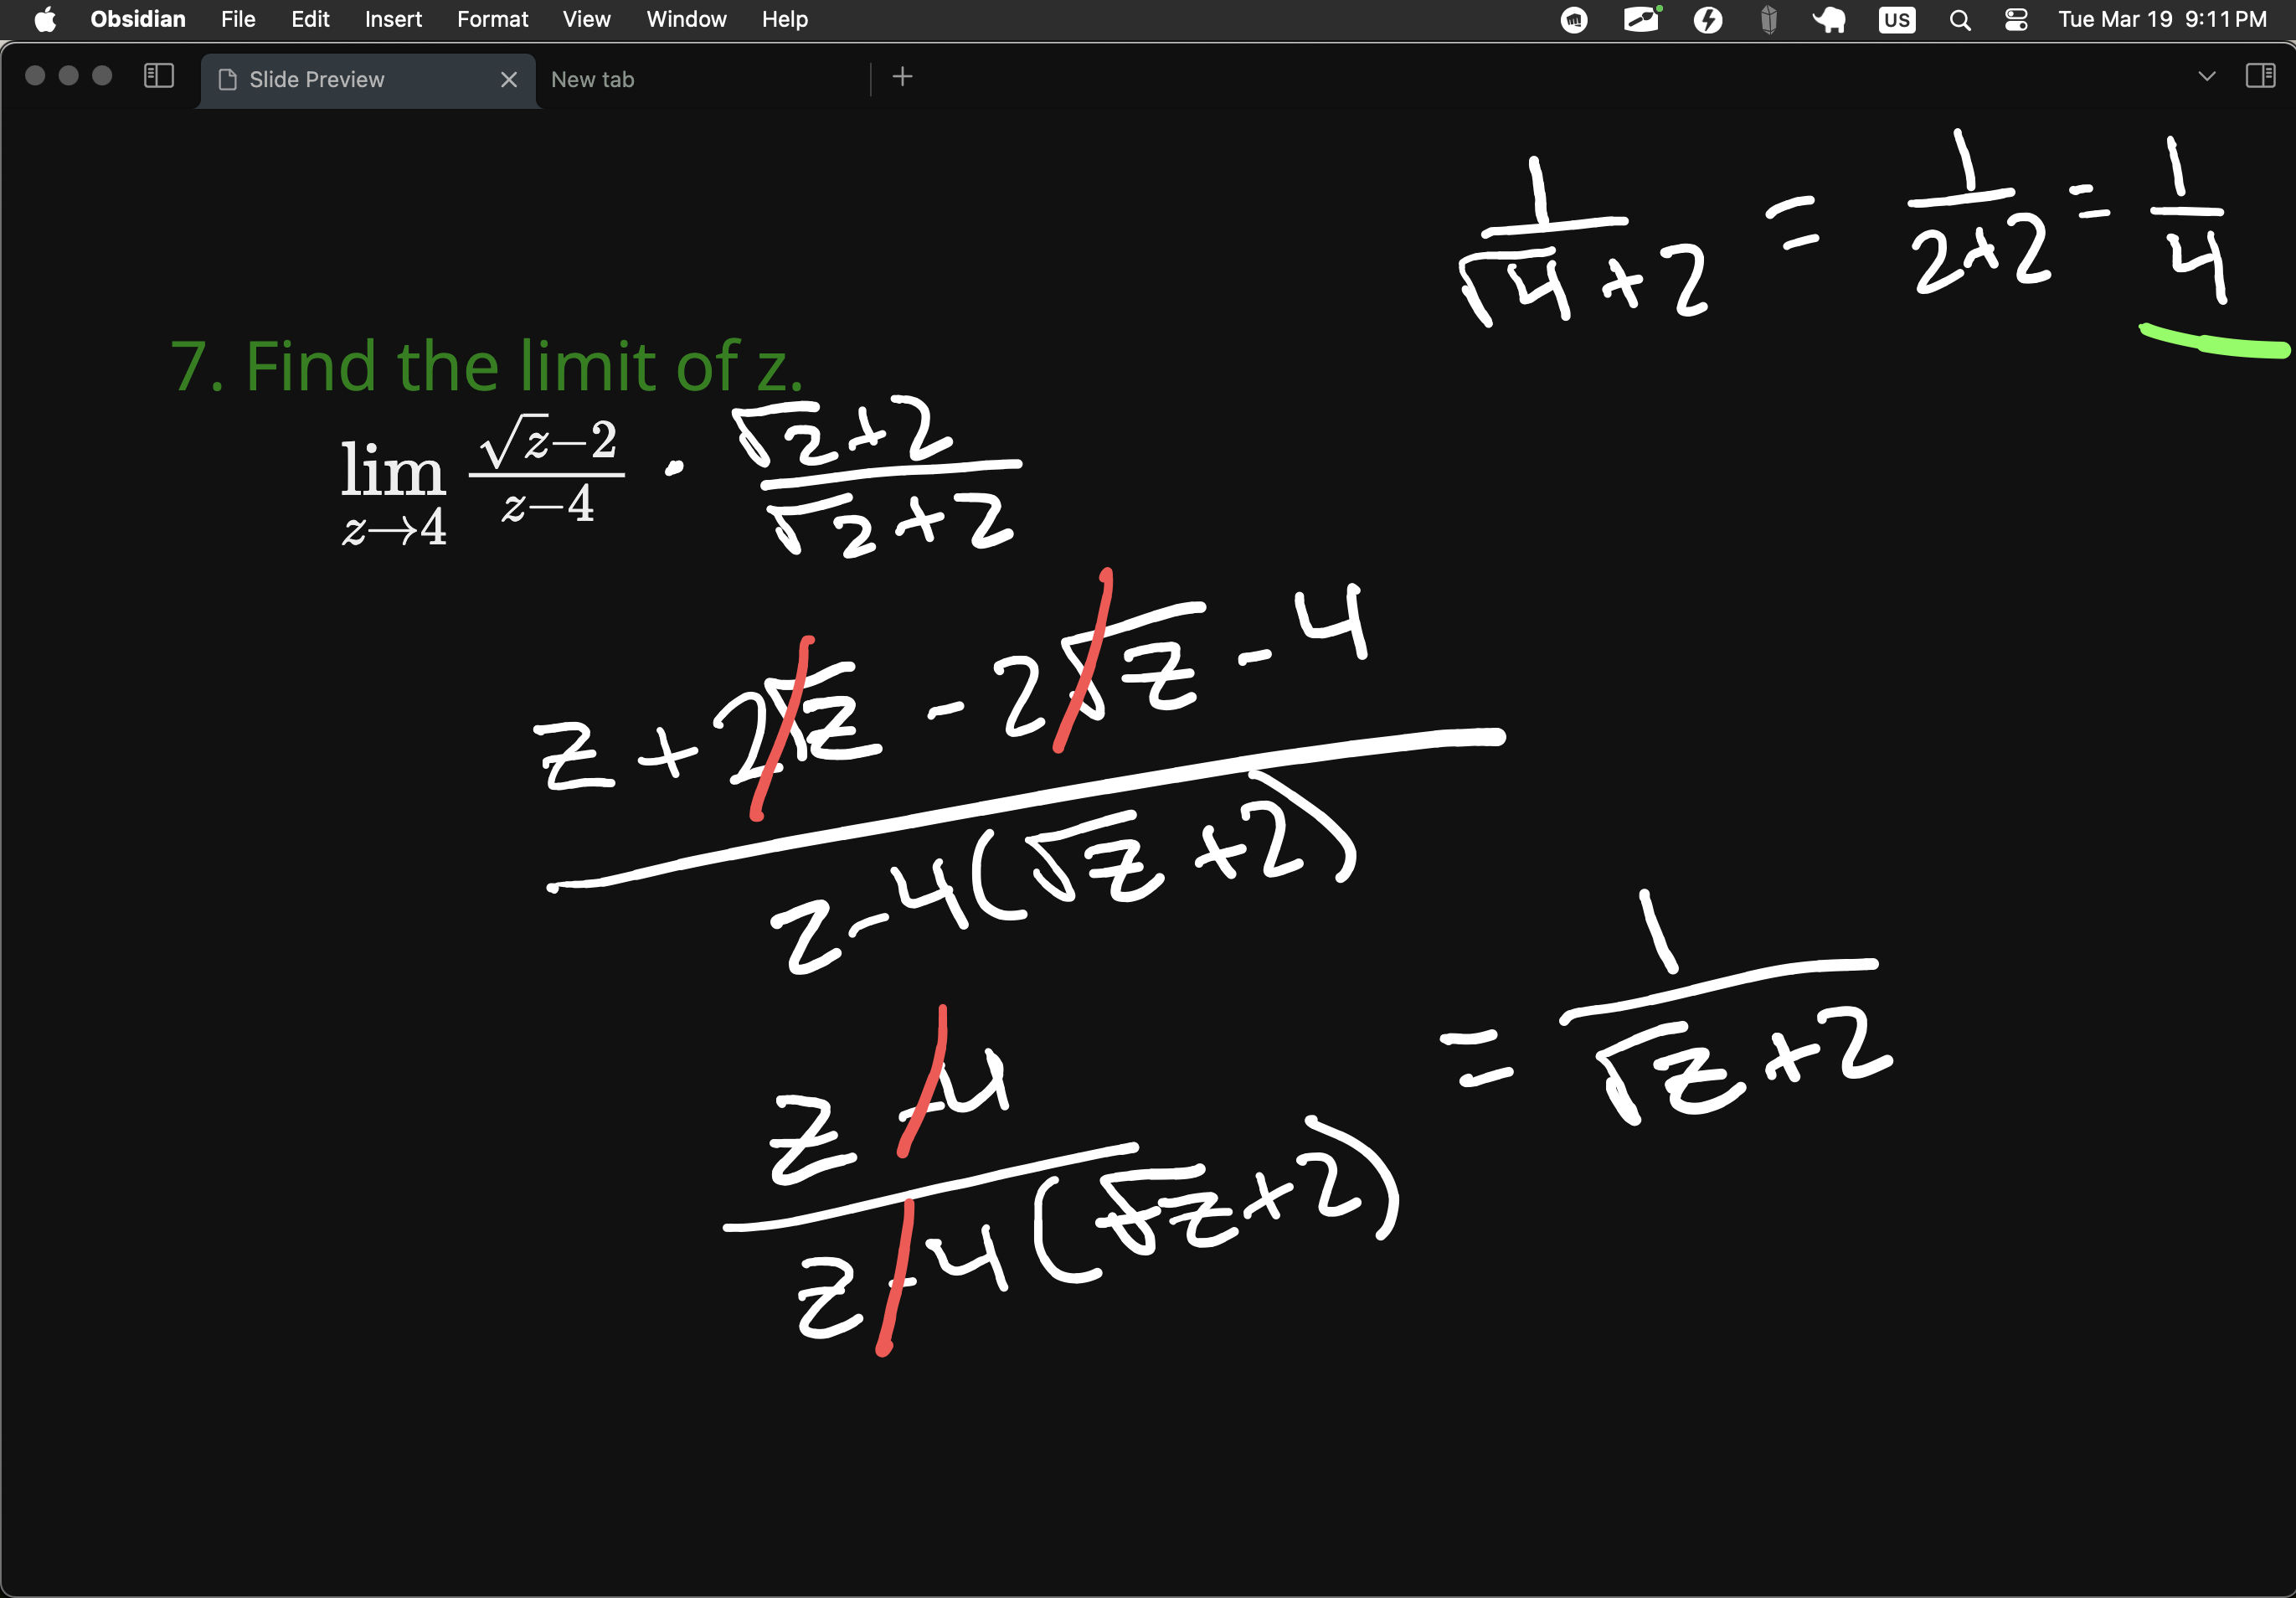 Obsidian File Edit Insert Format View Window Help US Tue Mar 19 9:11 PM
Slide Preview New tab
1/(√4+2) = 1/(2+2) = 1/4
7. Find the limit of z.
lim z→4 (√z−2)/(z−4) · (√z+2)/(√z+2)
z+2√z-2√z-4
z-4(√z+2)
z-4
z-4(√z+2)
= 1/(√z+2)